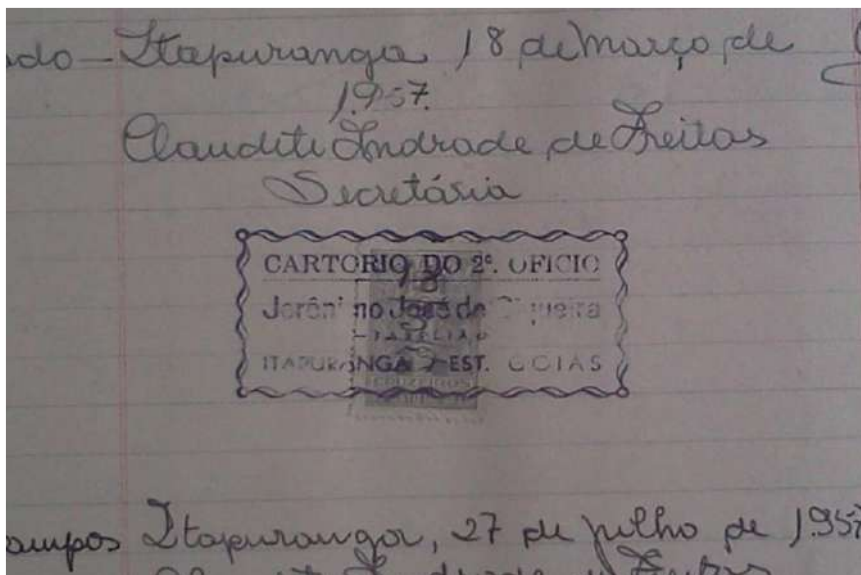 do - Itapuranga 18 de março de
1957.
Claudite Andrade de Freitas
Secretária
CARTORIO DO 2º. OFICIO
18
Jerôni no José de Siqueira
TABELIAO
ITAPURANGA - EST. GOIAS
CRUZEIROS
ampos Itapuranga, 27 de julho de 1957